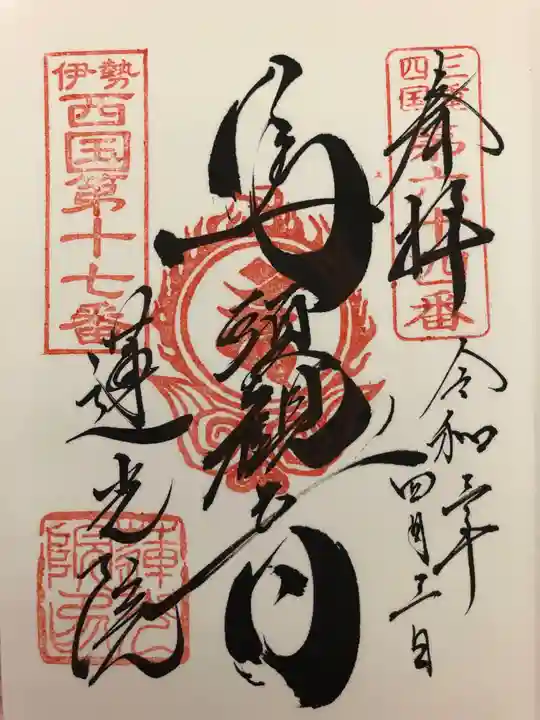 三重
四国
第六十四番
奉拝
令和三年
四月三日
馬頭観音
伊勢
西国第十七番
蓮光院